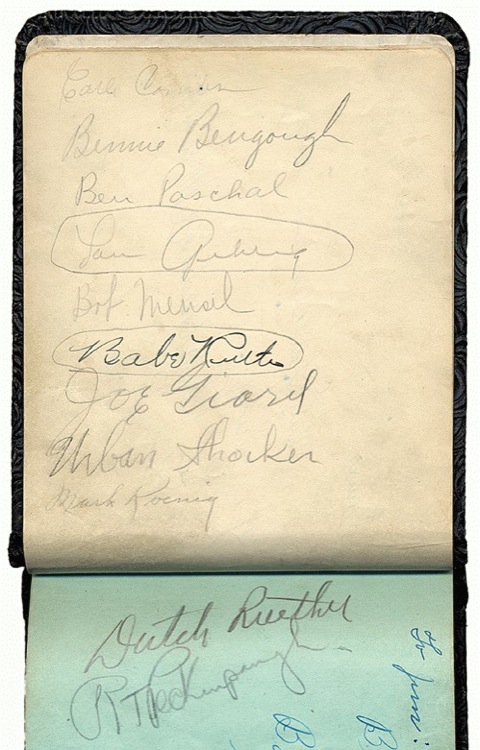 Earle Combs
Bennie Bengough
Ben Paschal
Lou Gehrig
Bob Meusel
Babe Ruth
Joe Giard
Urban Shocker
Mark Koenig
Dutch Ruether
R T Peckinpaugh
To Jim: